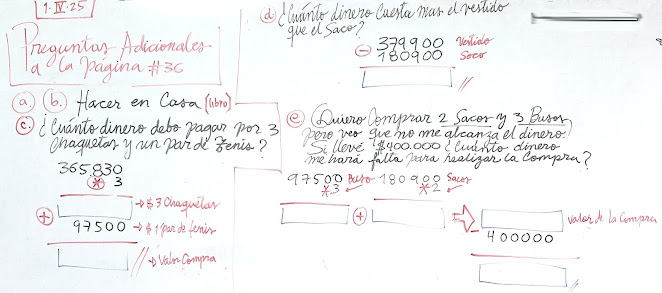 1·IV·25
Preguntas Adicionales
a la Página #36
a. b. Hacer en Casa (libro)
c) ¿Cuánto dinero debo pagar por 3
Chaquetas y un par de tenis?
365.830
* 3
→ $ 3 Chaquetas
+
97500 → $ 1 par de tenis
→ Valor Compra
d ¿Cuánto dinero Cuesta mas el vestido
que el Saco?
- 379900 Vestido
180900 Saco
e) Quiero Comprar 2 Sacos y 3 Busos
pero veo que no me alcanza el dinero
Si llevé $400.000 ¿Cuánto dinero
me hará falta para realizar la Compra?
97500 Buso 180900 Sacos
*3 *2
+ Valor de la Compra
400000